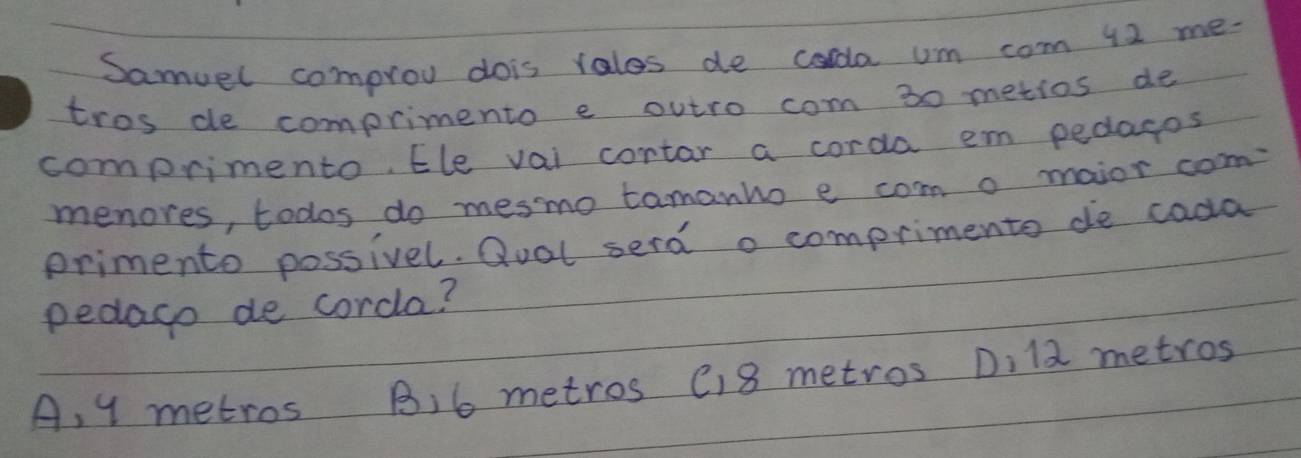 Samuel comprou dois rolos de corda um com 42 me-
tros de comprimento e outro com 30 metros de
comprimento. Ele vai cortar a corda em pedaços
menores, todos do mesmo tamanho e com o maior com-
primento possível. Qual será o comprimento de cada
pedaço de corda?
A, 4 metros B, 6 metros C, 8 metros D, 12 metros